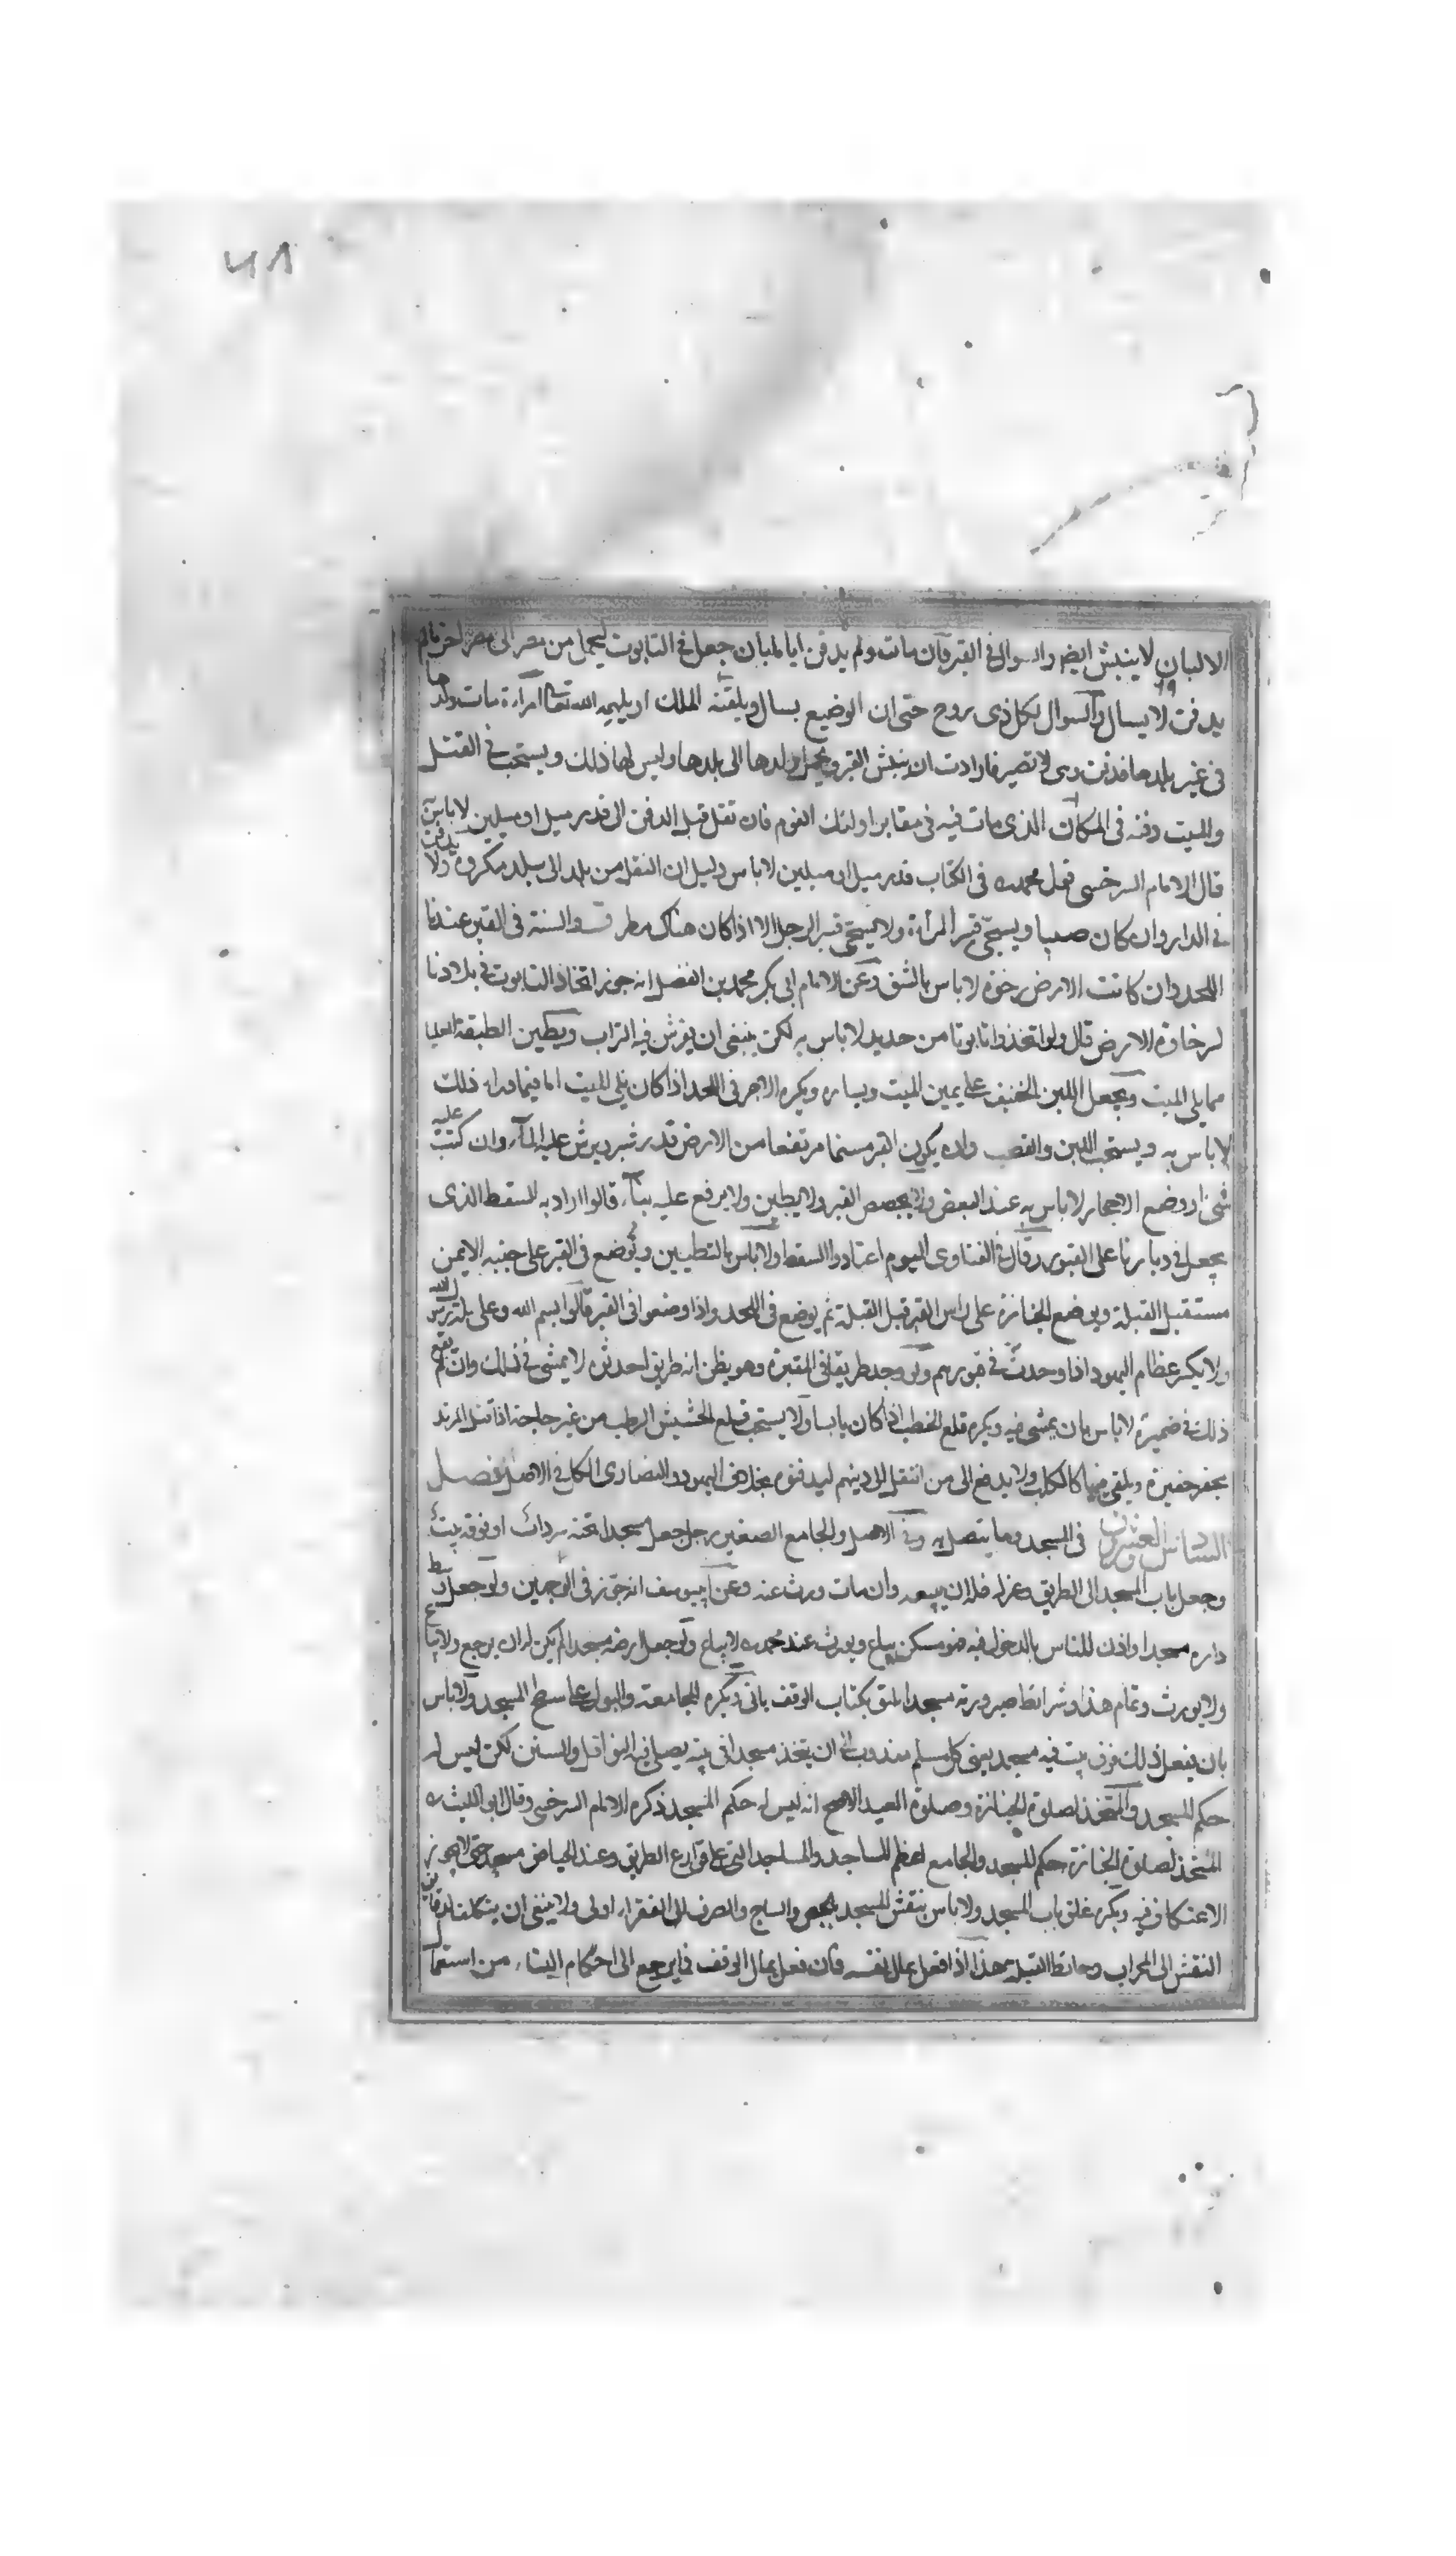 ٤٨
الالبان لا ينبش ايضا والسوال فى القبر فان مات ولم يدفن اياما بان جعل فى التابوت ليحمل من مصر الى مصر اخر مالم
يدفن لا يسال والسوال لكل ذى روح حتى ان الرضيع يسال ويلقنه الملك او يلهمه الله تعا امراة مات ولدها
فى غير بلدها فدفن وهى لا تصبر فارادت ان ينبش القبر ويحمل ولدها الى بلدها وليس لها ذلك ويستحب فى القتيل
والميت دفنه فى المكان الذى مات فيه فى مقابر اولئك القوم فان نقل قبل الدفن الى قدر ميل او ميلين لا باس
قال الامام السرخسى قول محمد ره فى الكتاب قدر ميل او ميلين لا باس دليل ان النقل من بلد الى بلد مكروه ولا يدفن
فى الدار وان كان صبيا ويسجى قبر المراة ولا يسجى قبر الرجل الا اذا كان هناك مطر والسنة فى القبر عندنا
اللحد وان كانت الارض رخوة لا باس بالشق وعن الامام ابى بكر محمد بن الفضل انه جوز اتخاذ التابوت فى بلادنا
لرخاوة الارض قال ولو اتخذوا تابوتا من حديد لا باس به لكن ينبغى ان يفرش فيه التراب ويطين الطبقة العليا
مما يلى الميت ويجعل اللبن الخفيف على يمين الميت ويساره ويكره الاجر فى اللحد اذا كان يلى الميت اما فيما وراء ذلك
لا باس به ويستحب اللبن والقصب وان يكون القبر مسنما مرتفعا من الارض قدر شبر ويرش عليه الماء وان كتب عليه
شئ او وضع الاحجار لا باس به عند البعض ولا يجصص القبر ولا يطين ولا يرفع عليه بناء قالوا اراد به السقط الذى
يجعل فى ديارنا على القبور وقال فى الفتاوى اليوم اعتادوا السقط ولا باس بالتطيين ويوضع فى القبر على جنبه الايمن
مستقبل القبلة ويوضع الجنازة على راس القبر قبل القبلة ثم يوضع فى اللحد واذا وضعوا فى القبر قالوا بسم الله وعلى ملة رسول الله
ولا يكسر عظام اليهود اذا وجدت فى قبورهم ولو وجد طريقا فى المقبرة وهو يظن انه طريق احدثوه لا يمشى فى ذلك وان لم يقع
ذلك فى ضميره لا باس بان يمشى فيه ويكره قلع الحطب اذا كان يابسا ولا يستحب قلع الحشيش الرطب من غير حاجة اذا قتل المرتد
يحفر حفيرة ويلقى فيها كالكلب ولا يدفع الى من انتقل الى دينهم ليدفنوه بخلاف اليهود والنصارى الكل فى الاصل فصل
السادس والعشرون فى المسجد وما يتصل به وفى الاصل والجامع الصغير رجل جعل مسجدا تحته سرداب او فوقه بيت
وجعل باب المسجد الى الطريق وعزله فله ان يبيعه وان مات ورث عنه وعن ابى يوسف انه جوز فى الوجهين ولو جعل وسط
داره مسجدا واذن للناس بالدخول فيه فهو مسكن يباع ويورث عند محمد ره لا يباع ولو جعل ارضه مسجدا لم يكن له ان يرجع ولا يباع
ولا يورث وتمام هذا وشرائط صيرورته مسجدا بكتاب الوقف ياتى ويكره المجامعة والبول على سطح المسجد ولا باس
بان يفعل ذلك فوق بيت فيه مسجد يعنى كل مسلم مندوب الى ان يتخذ مسجدا فى بيته يصلى فيه النوافل والسنن لكن ليس له
حكم المسجد والمتخذ لصلوة الجنازة وصلوة العيد الاصح انه ليس له حكم المسجد ذكره الامام السرخسى وقال ابو الليث ره
المتخذ لصلوة الجنازة حكم المسجد والجامع اعظم المساجد والمساجد التى على قوارع الطريق وعند الحياض مسجد حتى لا يجوز
الاعتكاف فيه ويكره غلق باب المسجد ولا باس بنقش المسجد بالجص والساج والصرف الى الفقراء اولى ولا ينبغى ان يتكلف لدقائق
النقش الى المحراب وحائط القبلة هذا اذا فعل بمال نفسه فان فعل بمال الوقف فما يرجع الى احكام البناء من استعمال